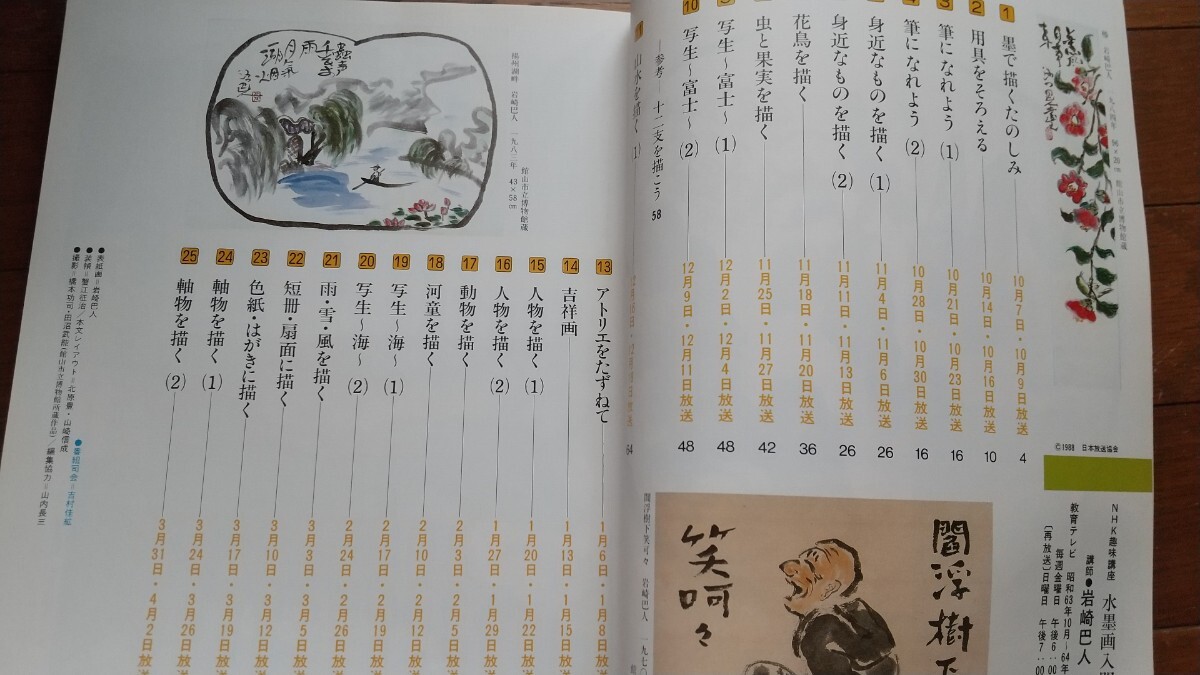 NHK趣味講座 水墨画入
講師●岩崎巴人
教育テレビ 昭和63年10月〜64年
毎週金曜日 午後6:00
〔再放送〕日曜日 午後7:00
©1988 日本放送協会
1 墨で描くたのしみ 10月7日・10月9日放送 4
2 用具をそろえる 10月14日・10月16日放送 10
3 筆になれよう(1) 10月21日・10月23日放送 16
4 筆になれよう(2) 10月28日・10月30日放送 16
身近なものを描く(1) 11月4日・11月6日放送 26
身近なものを描く(2) 11月11日・11月13日放送 26
花鳥を描く 11月18日・11月20日放送 36
虫と果実を描く 11月25日・11月27日放送 42
写生〜富士〜(1) 12月2日・12月4日放送 48
10 写生〜富士〜(2) 12月9日・12月11日放送 48
―参考―十二支を描こう 58
山水を描く(1)
64
閻浮樹下
笑呵々
閻浮樹下笑呵々 岩崎巴人 一九七〇
楊州湖畔 岩崎巴人 一九八三年 43×58cm
館山市立博物館蔵
13 アトリエをたずねて 1月6日・1月8日放送
14 吉祥画 1月13日・1月15日放送
15 人物を描く(1) 1月20日・1月22日放送
16 人物を描く(2) 1月27日・1月29日放送
17 動物を描く 2月3日・2月5日放送
18 河童を描く 2月10日・2月12日放送
19 写生〜海〜(1) 2月17日・2月19日放送
20 写生〜海〜(2) 2月24日・2月26日放送
21 雨・雪・風を描く 3月3日・3月5日放送
22 短冊・扇面に描く 3月10日・3月12日放送
23 色紙・はがきに描く 3月17日・3月19日放送
24 軸物を描く(1) 3月24日・3月26日放送
25 軸物を描く(2) 3月31日・4月2日放送
●番組司会=吉村佳紅
●表紙画=岩崎巴人
●装幀=蟹江征治/本文レイアウト=北原豊・山崎信成
●撮影=橋本功司・田沼武能(館山市立博物館所蔵作品)/編集協力=山内長三